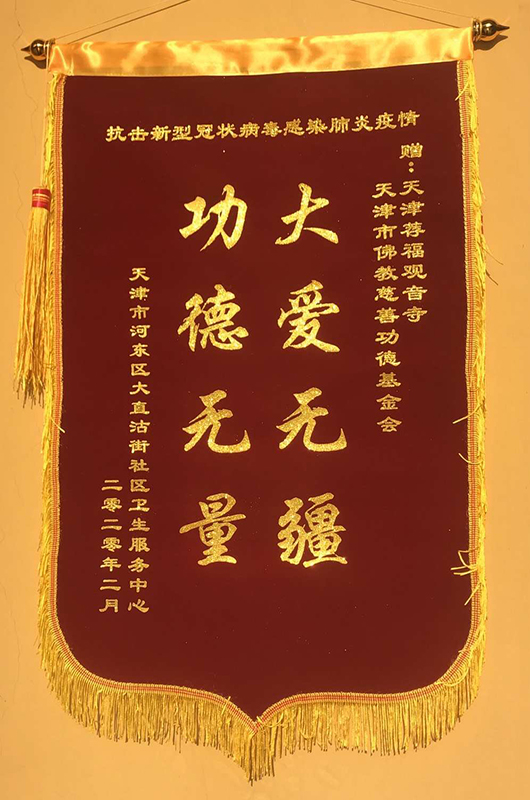 抗击新型冠状病毒感染肺炎疫情
赠：天津荐福观音寺
天津市佛教慈善功德基金会
大爱无疆
功德无量
天津市河东区大直沽街社区卫生服务中心
二零二零年二月